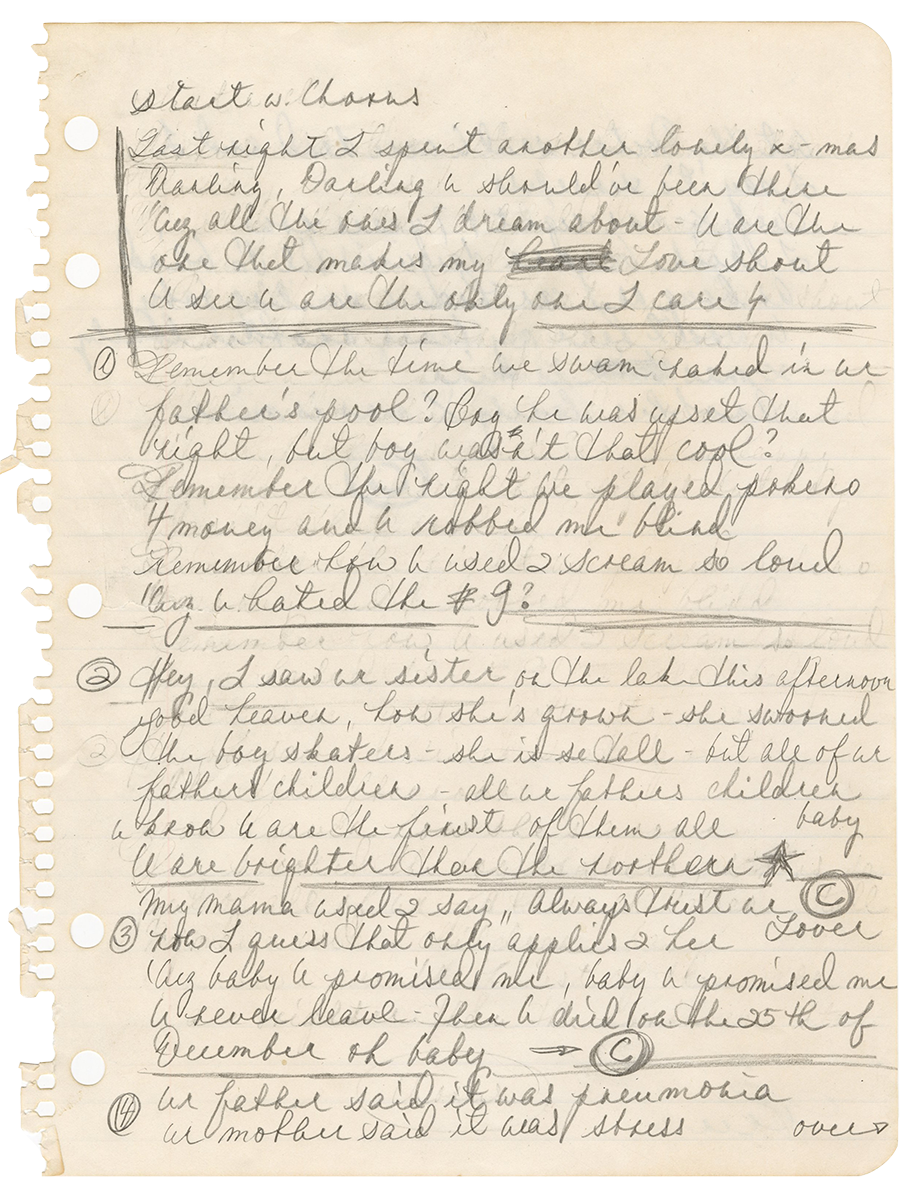 Start w. Chorus
Last night I spent another lonely x-mas
Darling, Darling U should've been there
'Cuz all the ones I dream about - U are the
one that makes my heart Love shout
U see U are the only one I care 4
① Remember the time we swam naked in ur
father's pool? Boy he was upset that
night, but boy wasn't that cool?
Remember the night we played pokeno
4 money and U robbed me blind
Remember how U used 2 scream so loud
'Cuz U hated the # 9?
② Hey, I saw ur sister on the lake this afternoon
good heaven, how she's grown - she swooned
2 the boy skaters - she is so tall - but all of ur
fathers children - all ur fathers children
U know U are the finest of them all baby
U are brighter than the northern ★
My mama used 2 say,, always trust ur Ⓒ
③ now I guess that only applies 2 her Lover
'Cuz baby U promised me, baby U promised me
U never leave - Then U died on the 25th of
December oh baby → Ⓒ
④ ur father said it was pneumonia
ur mother said it was stress over →